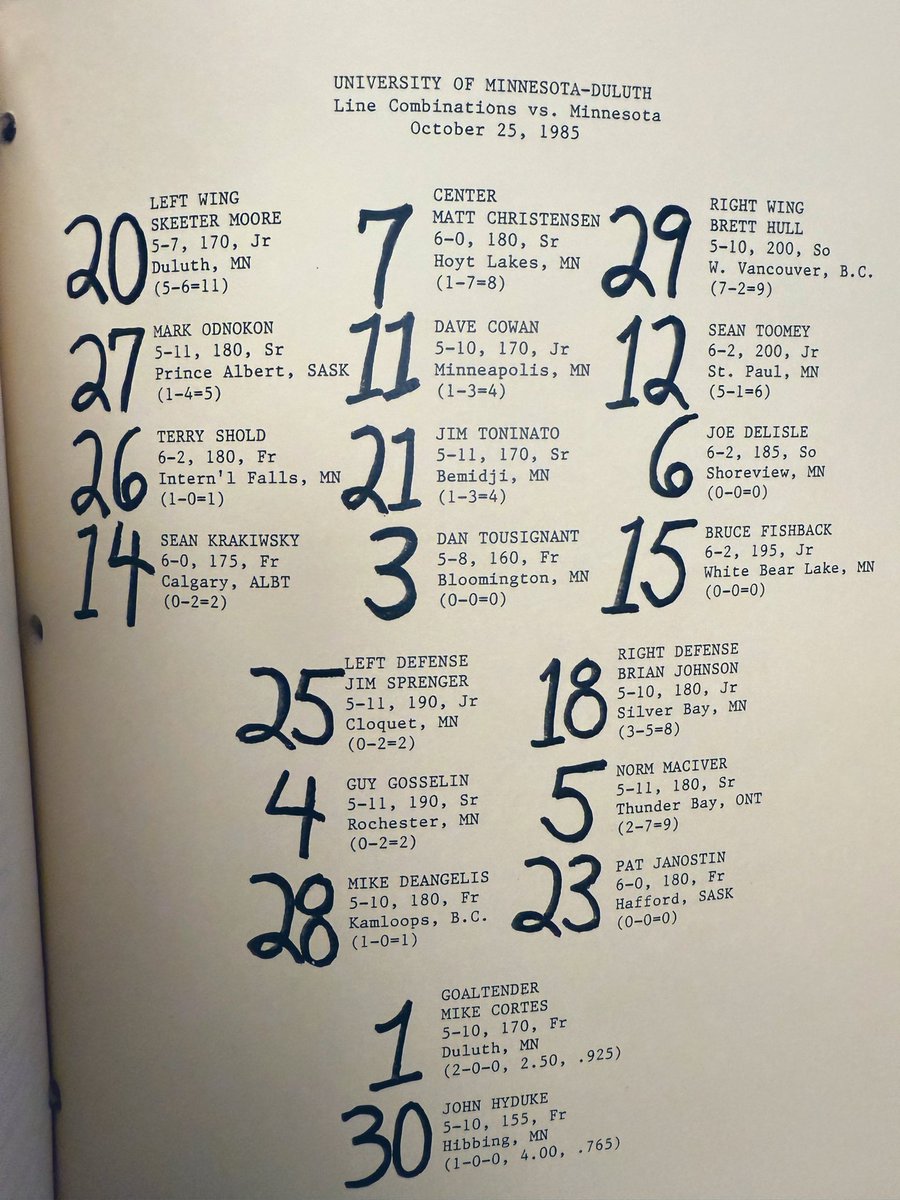 UNIVERSITY OF MINNESOTA-DULUTH
Line Combinations vs. Minnesota
October 25, 1985
LEFT WING
20
SKEETER MOORE
5-7, 170, Jr
Duluth, MN
(5-6=11)
CENTER
7
MATT CHRISTENSEN
6-0, 180, Sr
Hoyt Lakes, MN
(1-7=8)
RIGHT WING
29
BRETT HULL
5-10, 200, So
W. Vancouver, B.C.
(7-2=9)
27
MARK ODNOKON
5-11, 180, Sr
Prince Albert, SASK
(1-4=5)
11
DAVE COWAN
5-10, 170, Jr
Minneapolis, MN
(1-3=4)
12
SEAN TOOMEY
6-2, 200, Jr
St. Paul, MN
(5-1=6)
26
TERRY SHOLD
6-2, 180, Fr
Intern'l Falls, MN
(1-0=1)
21
JIM TONINATO
5-11, 170, Sr
Bemidji, MN
(1-3=4)
6
JOE DELISLE
6-2, 185, So
Shoreview, MN
(0-0=0)
14
SEAN KRAKIWSKY
6-0, 175, Fr
Calgary, ALBT
(0-2=2)
3
DAN TOUSIGNANT
5-8, 160, Fr
Bloomington, MN
(0-0=0)
15
BRUCE FISHBACK
6-2, 195, Jr
White Bear Lake, MN
(0-0=0)
LEFT DEFENSE
25
JIM SPRENGER
5-11, 190, Jr
Cloquet, MN
(0-2=2)
RIGHT DEFENSE
18
BRIAN JOHNSON
5-10, 180, Jr
Silver Bay, MN
(3-5=8)
4
GUY GOSSELIN
5-11, 190, Sr
Rochester, MN
(0-2=2)
5
NORM MACIVER
5-11, 180, Sr
Thunder Bay, ONT
(2-7=9)
28
MIKE DEANGELIS
5-10, 180, Fr
Kamloops, B.C.
(1-0=1)
23
PAT JANOSTIN
6-0, 180, Fr
Hafford, SASK
(0-0=0)
GOALTENDER
1
MIKE CORTES
5-10, 170, Fr
Duluth, MN
(2-0-0, 2.50, .925)
30
JOHN HYDUKE
5-10, 155, Fr
Hibbing, MN
(1-0-0, 4.00, .765)